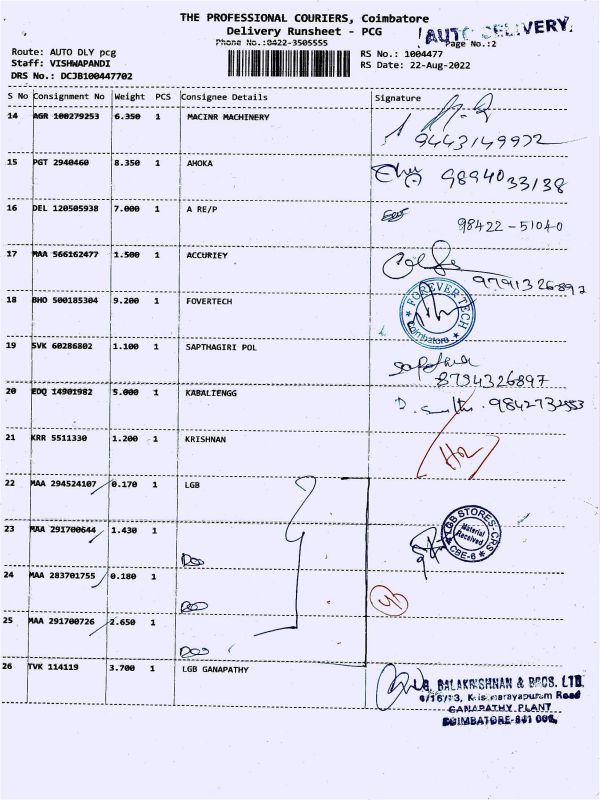 THE PROFESSIONAL COURIERS, Coimbatore
Delivery Runsheet - PCG
AUTO DELIVERY
Phone No.:0422-3505555
Page No.:2
Route: AUTO DLY pcg
RS No.: 1004477
Staff: VISHWAPANDI
RS Date: 22-Aug-2022
DRS No.: DCJB100447702
S No Consignment No Weight PCS Consignee Details Signature
14 AGR 100279253 6.350 1 MACINR MACHINERY
9443149972
15 PGT 2940460 8.350 1 AHOKA
9894033138
16 DEL 120505938 7.000 1 A RE/P
98422-51040
17 MAA 566162477 1.500 1 ACCURIEY
9791326897
18 BHO 500185304 9.200 1 FOVERTECH
FOREVER TECH
Coimbatore
19 SVK 60286802 1.100 1 SAPTHAGIRI POL
8754326897
20 EDQ 14901982 5.000 1 KABALIENGG
21 KRR 5511330 1.200 1 KRISHNAN
22 MAA 294524107 0.170 1 LGB
LGB STORES-CRS
Material
Received
CBE-6
23 MAA 291700644 1.430 1
DOO
24 MAA 283701755 0.180 1
DOO
25 MAA 291700726 2.650 1
DOO
26 TVK 114119 3.700 1 LGB GANAPATHY
L.G. BALAKRISHNAN & BROS. LTD.
6/16/13, Krishnarayapuram Road
GANAPATHY PLANT
COIMBATORE-641 006,